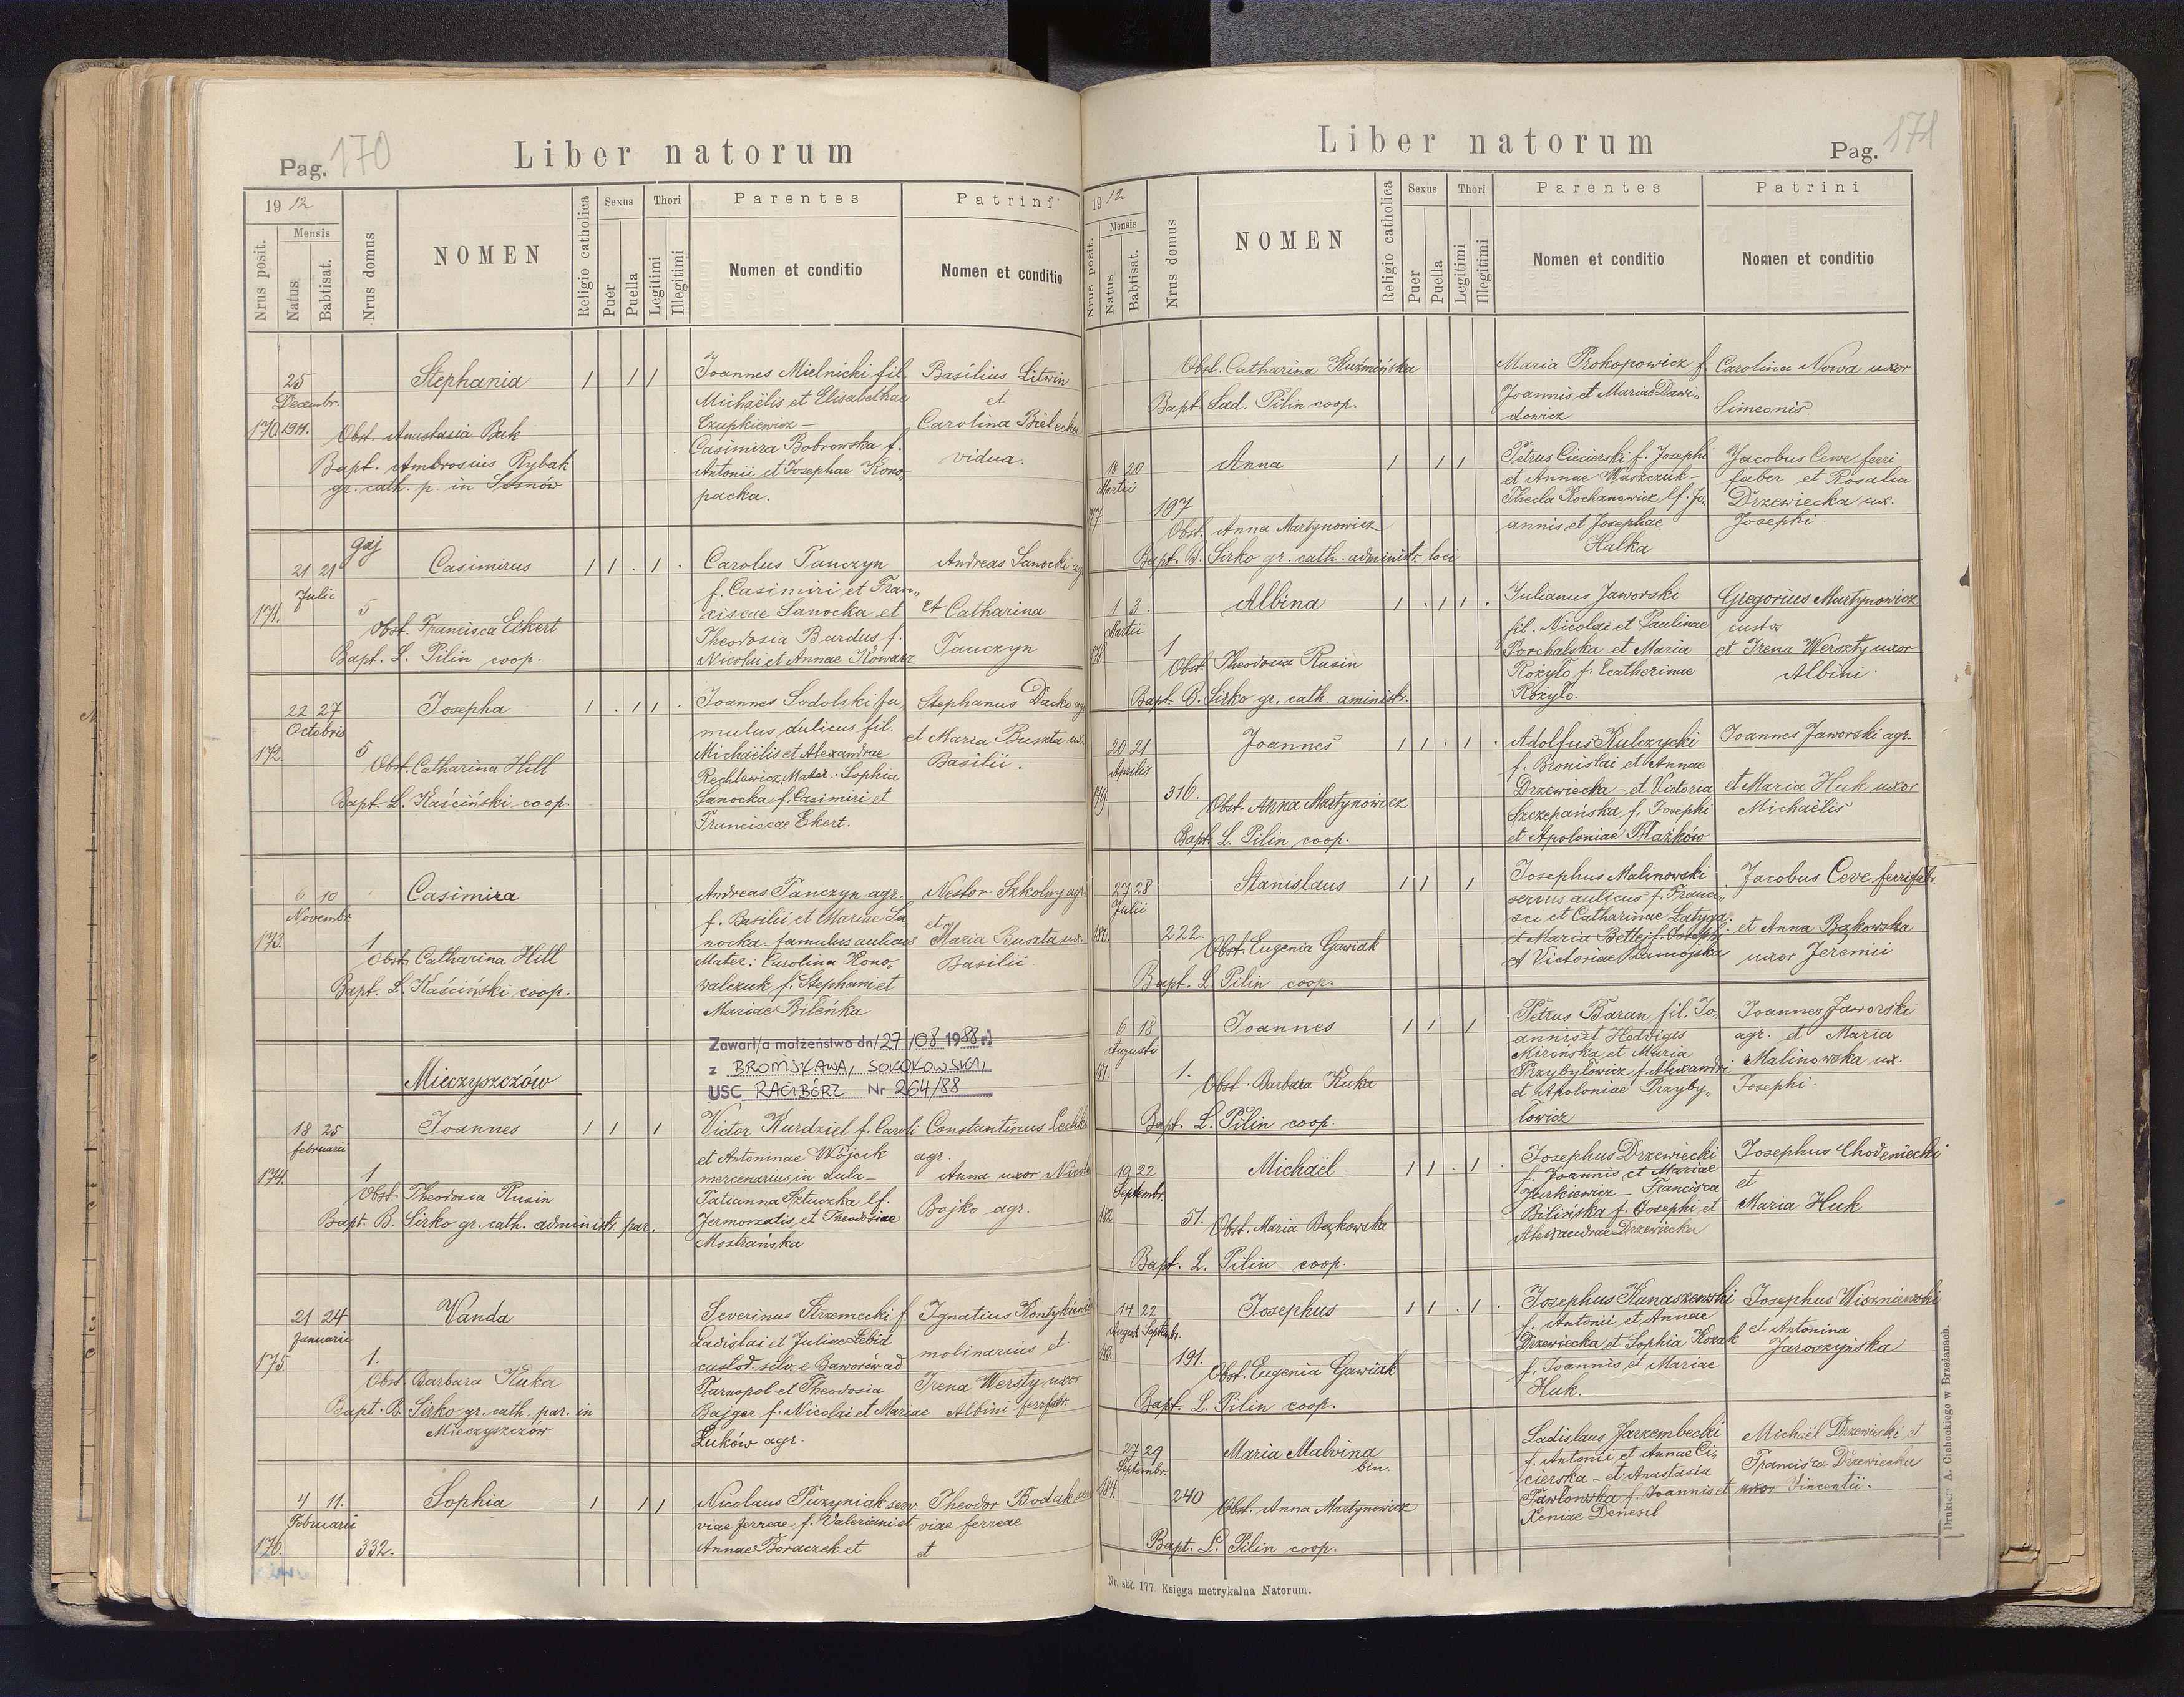 Pag. 170
Liber natorum
19 12
Nrus posit.
Mensis
Natus
Babtisat.
Nrus domus
NOMEN
Religio catholica
Sexus
Puer
Puella
Thori
Legitimi
Illegitimi
Parentes
Nomen et conditio
Patrini
Nomen et conditio
170.
25
Decembr.
1911.
Stephania
Obst. Anastasia Buk
Bapt. Ambrosius Rybak
gr. cath. p. in Sosnów
Joannes Mielnicki fil.
Michaëlis et Elisabethae
Czupkiewicz –
Casimira Bobrowska f.
Antonii et Josephae Kono-
packa.
Basilius Litwin
et
Carolina Bielecka
vidua.
171.
21 21
Julii
Gaj
5
Casimirus
Obst. Francisca Eckert
Bapt. L. Pilin coop.
Carolus Tanczyn
f. Casimiri et Fran-
ciscae Sanocka et
Theodosia Burdus f.
Nicolai et Annae Kowacz
Andreas Sanocki ag
et Catharina
Tauczyn
172.
22 27
Octobris
5
Josepha
Obst. Catharina Hill
Bapt. L. Kaściński coop.
Joannes Sodolski fa-
mulus dulicus fil.
Michaëlis et Alexandrae
Rechlewicz. Mater: Sophia
Sanocka f. Casimiri et
Franciscae Ekert.
Stephanus Dacko ag
et Maria Buszta ux.
Basilii.
173.
6 10
Novembr.
1
Casimira
Obst. Catharina Hill
Bapt. L. Kaściński coop.
Andreas Tanczyn agr.
f. Basilii et Mariae Sa
nocka – famulus aulicus
Mater: Carolina Kono-
walczuk f. Stephani et
Mariae Bileńka
Nestor Szkolny agr.
et
Maria Buszta ux.
Basilii
Zawarł/a małżeństwo dn/27/08 1988 r.
z BRONISŁAWA, SOKOŁOWSKA,
USC RACIBÓRZ Nr 264/88
Mieczyszczów
174.
18 25
februarii
1
Joannes
Obst. Theodosia Rusin
Bapt. B. Sirko gr. cath. administr. par.
Victor Kurdziel f. Caroli
et Antoninae Wójcik
mercenarius in aula –
Tatianna Sztuczka lf.
Jermorzatis et Theodosiae
Mostrańska
Constantinus Lechki
agr.
Anna uxor Nicola
Bojko agr.
175.
21 24
Januarii
1.
Vanda
Obst. Barbara Kuka
Bapt. B. Sirko gr. cath. par. in
Mieczyszczów
Severinus Strzemecki f
Ladislai et Juliae Lebid
custod. silv. e Baworów ad
Tarnopol et Theodosia
Bajger f. Nicolai et Mariae
Łuków agr.
Ignatius Kontykiewicz
molinarius et
Irena Wersty uxor
Albini ferrfabr.
176.
4 11.
Februarii
332.
Sophia
Nicolaus Puzyniak serv.
viae ferreae f. Valeriani et
Annae Boraczek et
Theodor Bodak serv
viae ferreae
et
Liber natorum
Pag. 171
19 12
Nrus posit.
Mensis
Natus
Babtisat.
Nrus domus
NOMEN
Religio catholica
Sexus
Puer
Puella
Thori
Legitimi
Illegitimi
Parentes
Nomen et conditio
Patrini
Nomen et conditio
Obst. Catharina Kuźmińska
Bapt. Lad. Pilin coop.
Maria Prokopowicz f.
Joannis et Mariae Dawi-
dowicz
Carolina Nowa uxor
Simeonis.
177.
18 20
Martii
197
Anna
Obst. Anna Martynowicz
Bapt. B. Sirko gr. cath. administr. loci
Petrus Ciecierski f. Josephi
et Annae Waszczuk –
Thecla Kochanowicz lf. Jo-
annis et Josephae
Halka
Jacobus Cewe ferri
faber et Rosalia
Drzewiecka ux.
Josephi
178.
1 3.
Martii
1
Albina
Obst. Theodosia Rusin
Bapt. B. Sirko gr. cath. aministr.
Julianus Jaworski
fil. Nicolai et Paulinae
Porchalska et Maria
Rożyło f. Ecatherinae
Rożyło.
Gregorius Martynowicz
custos
et Irena Werszty uxor
Albini.
179.
20 21
Aprilis
316.
Joannes
Obst. Anna Martynowicz
Bapt. L. Pilin coop.
Adolfus Kulczycki
f. Bronislai et Annae
Drzewiecka – et Victoria
Szczepańska f. Josephi
et Apoloniae Błażków
Joannes Jaworski agr.
et Maria Huk uxor
Michaëlis
180.
27 28
Julii
222.
Stanislaus
Obst. Eugenia Gawiak
Bapt. L. Pilin coop.
Josephus Malinowski
servus aulicus f. Franci-
sci et Catharinae Łatyga.
et Maria Betlej f. Josephi
et Victoriae Zamojska
Jacobus Ceve ferrifabr.
et Anna Bąkowska
uxor Jeremii
181.
6 18
Augusti
1.
Joannes
Obst. Barbara Kuka
Bapt. L. Pilin coop.
Petrus Baran fil. Jo-
annis et Hedvigis
Mirońska et Maria
Przybyłowicz f. Alexandri
et Apoloniae Przyby-
łowicz
Joannes Jaworski
agr. et Maria
Malinowska ux.
Josephi.
182.
19 22
Septembr.
51.
Michaël
Obst. Maria Bązkowska
Bapt. L. Pilin coop.
Josephus Drzewiecki
f. Joannis et Mariae
Jurkiewicz – Francisca
Bilińska f. Josephi et
Alexandrae Drzewiecka
Josephus Chodeniecki
et
Maria Huk
183.
14 22
August Septembr.
191.
Josephus
Obst. Eugenia Gawiak
Bapt. L. Pilin coop.
Josephus Kunaszewski
f. Antonii et Annae
Drzewiecka et Sophia Kozak
f. Joannis et Mariae
Huk.
Josephus Wiszniewski
et Antonina
Jaroszyńska
184.
27 29
Septembr.
240
Maria Malvina
bin.
Obst. Anna Martynowicz
Bapt. L. Pilin coop.
Ladislaus Jarzembecki
f. Antonii et Annae Ci-
cierska – et Anastasia
Pawłowska f. Joannis et
Xeniae Denesil
Michaël Drzewiecki et
Francisca Drzewiecka
uxor Vincentii.
Nr. skł. 177 Księga metrykalna Natorum.
Drukiem A. Cichockiego w Brzeżanach.